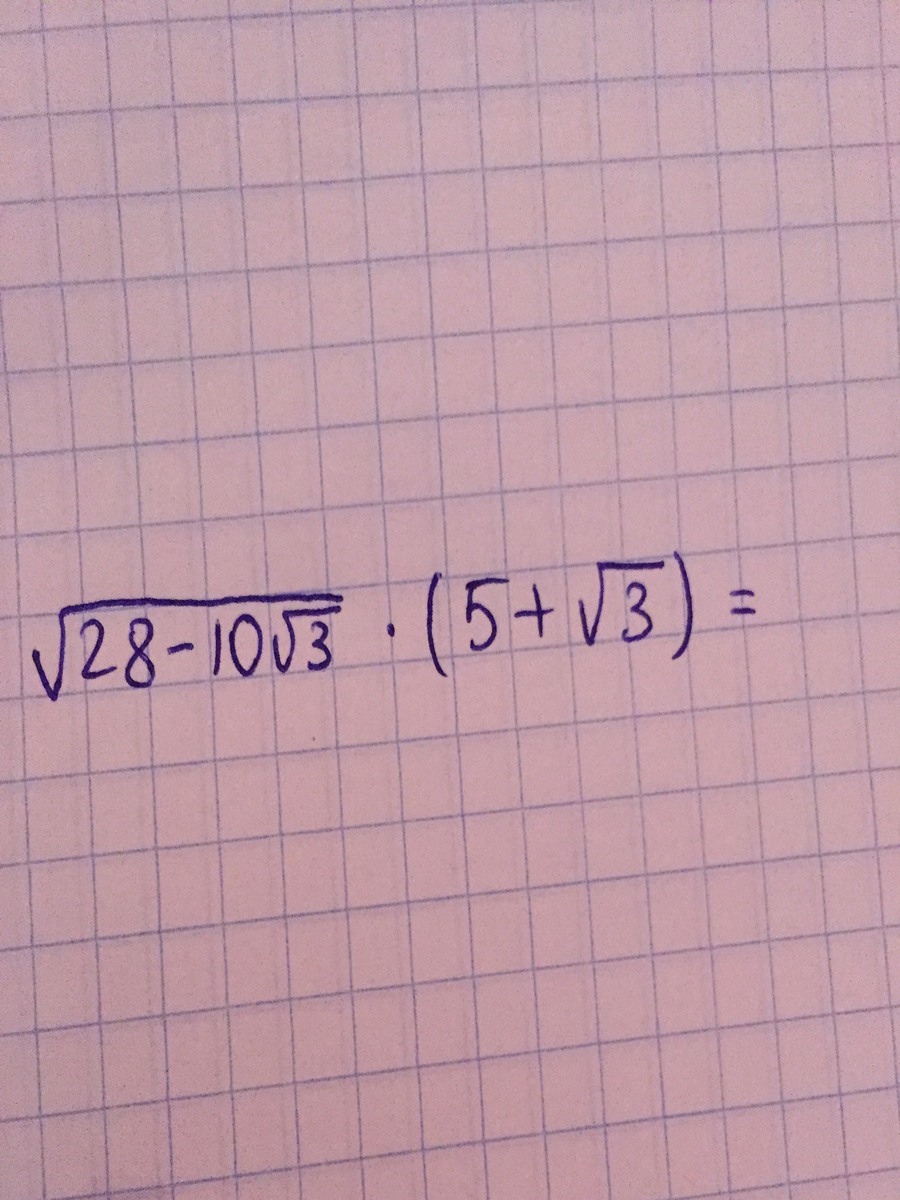 √(28-10√3) · (5+√3) =